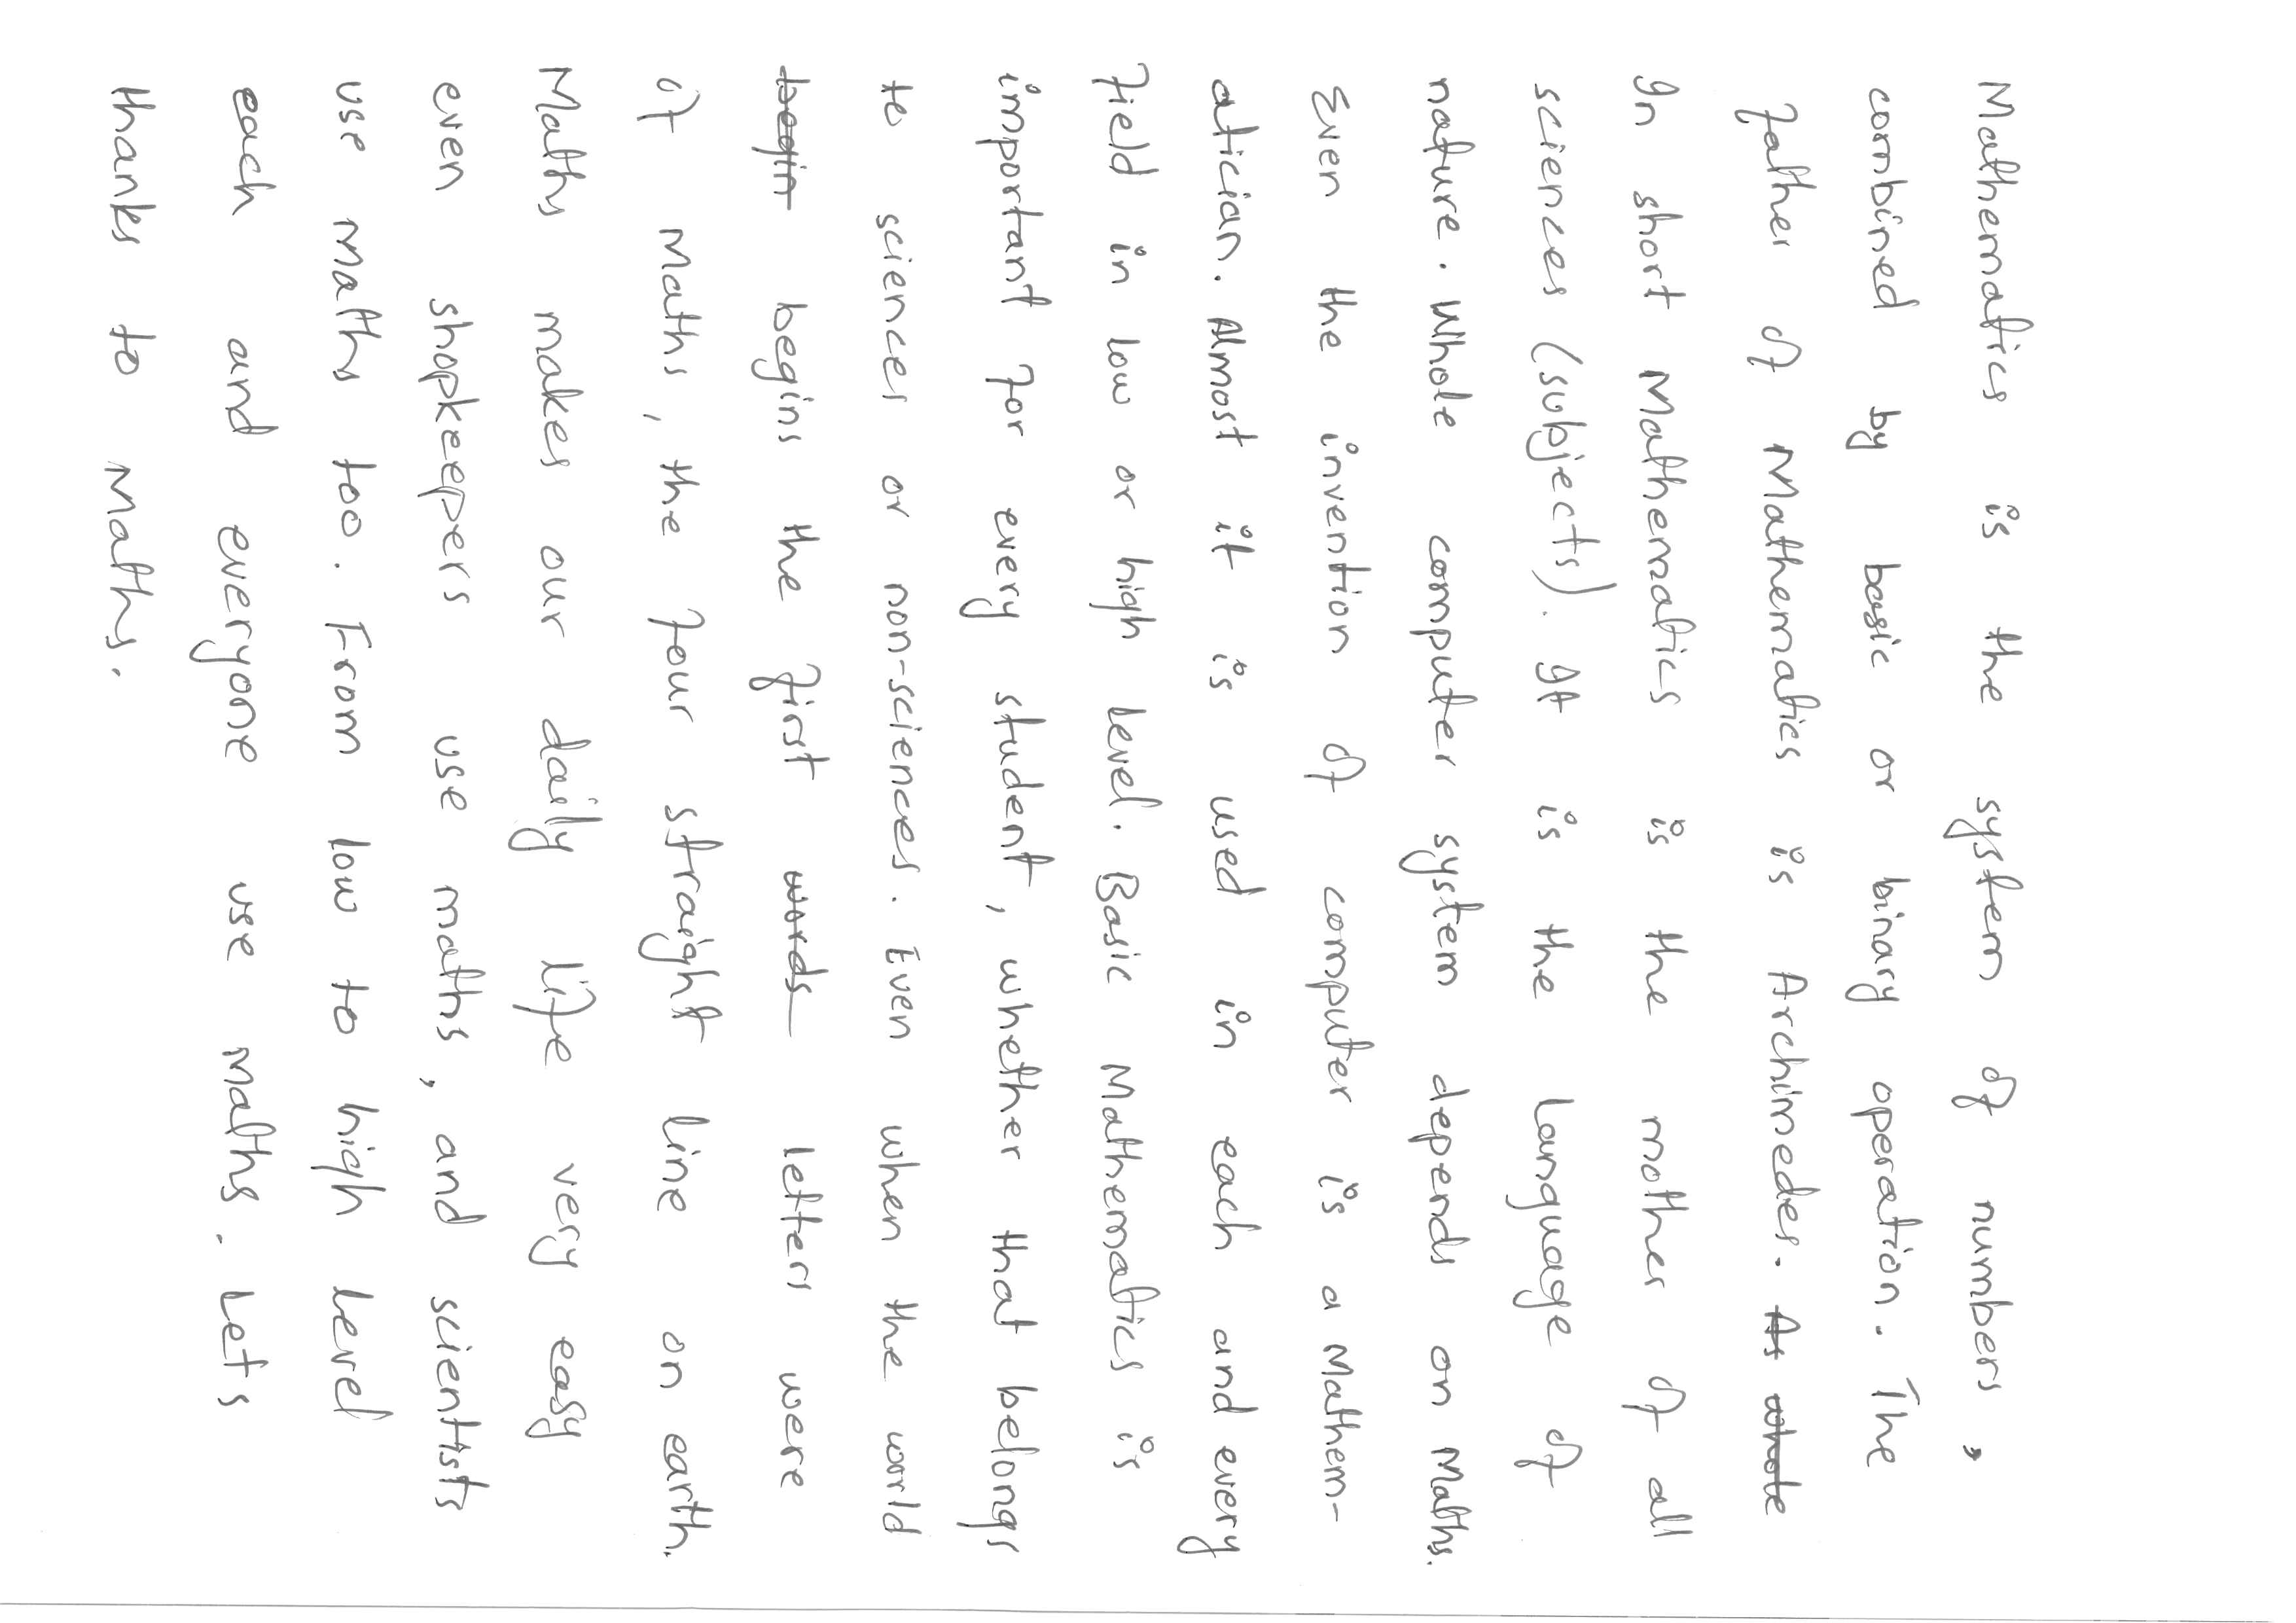 Mathematics is the system of numbers,
combined by basic or binary operation. The
father of Mathematics is Archimedes. As whole
In short Mathematics is the mother of all
sciences (subjects). It is the language of
nature. Whole computer system depends on Maths.
Even the invention of computer is a Mathem-
atician. Almost it is used in each and every
field in low or high level. Basic Mathematics is
important for every student, whether that belongs
to sciences or non-sciences. Even when the world
begin begins the first words letters were
of Maths, the four straight line on earth.
Maths makes our daily life very easy
even shopkeepers use maths, and scientists
use Maths too. From low to high level
each and everyone use Maths. Lets
thanks to Maths.